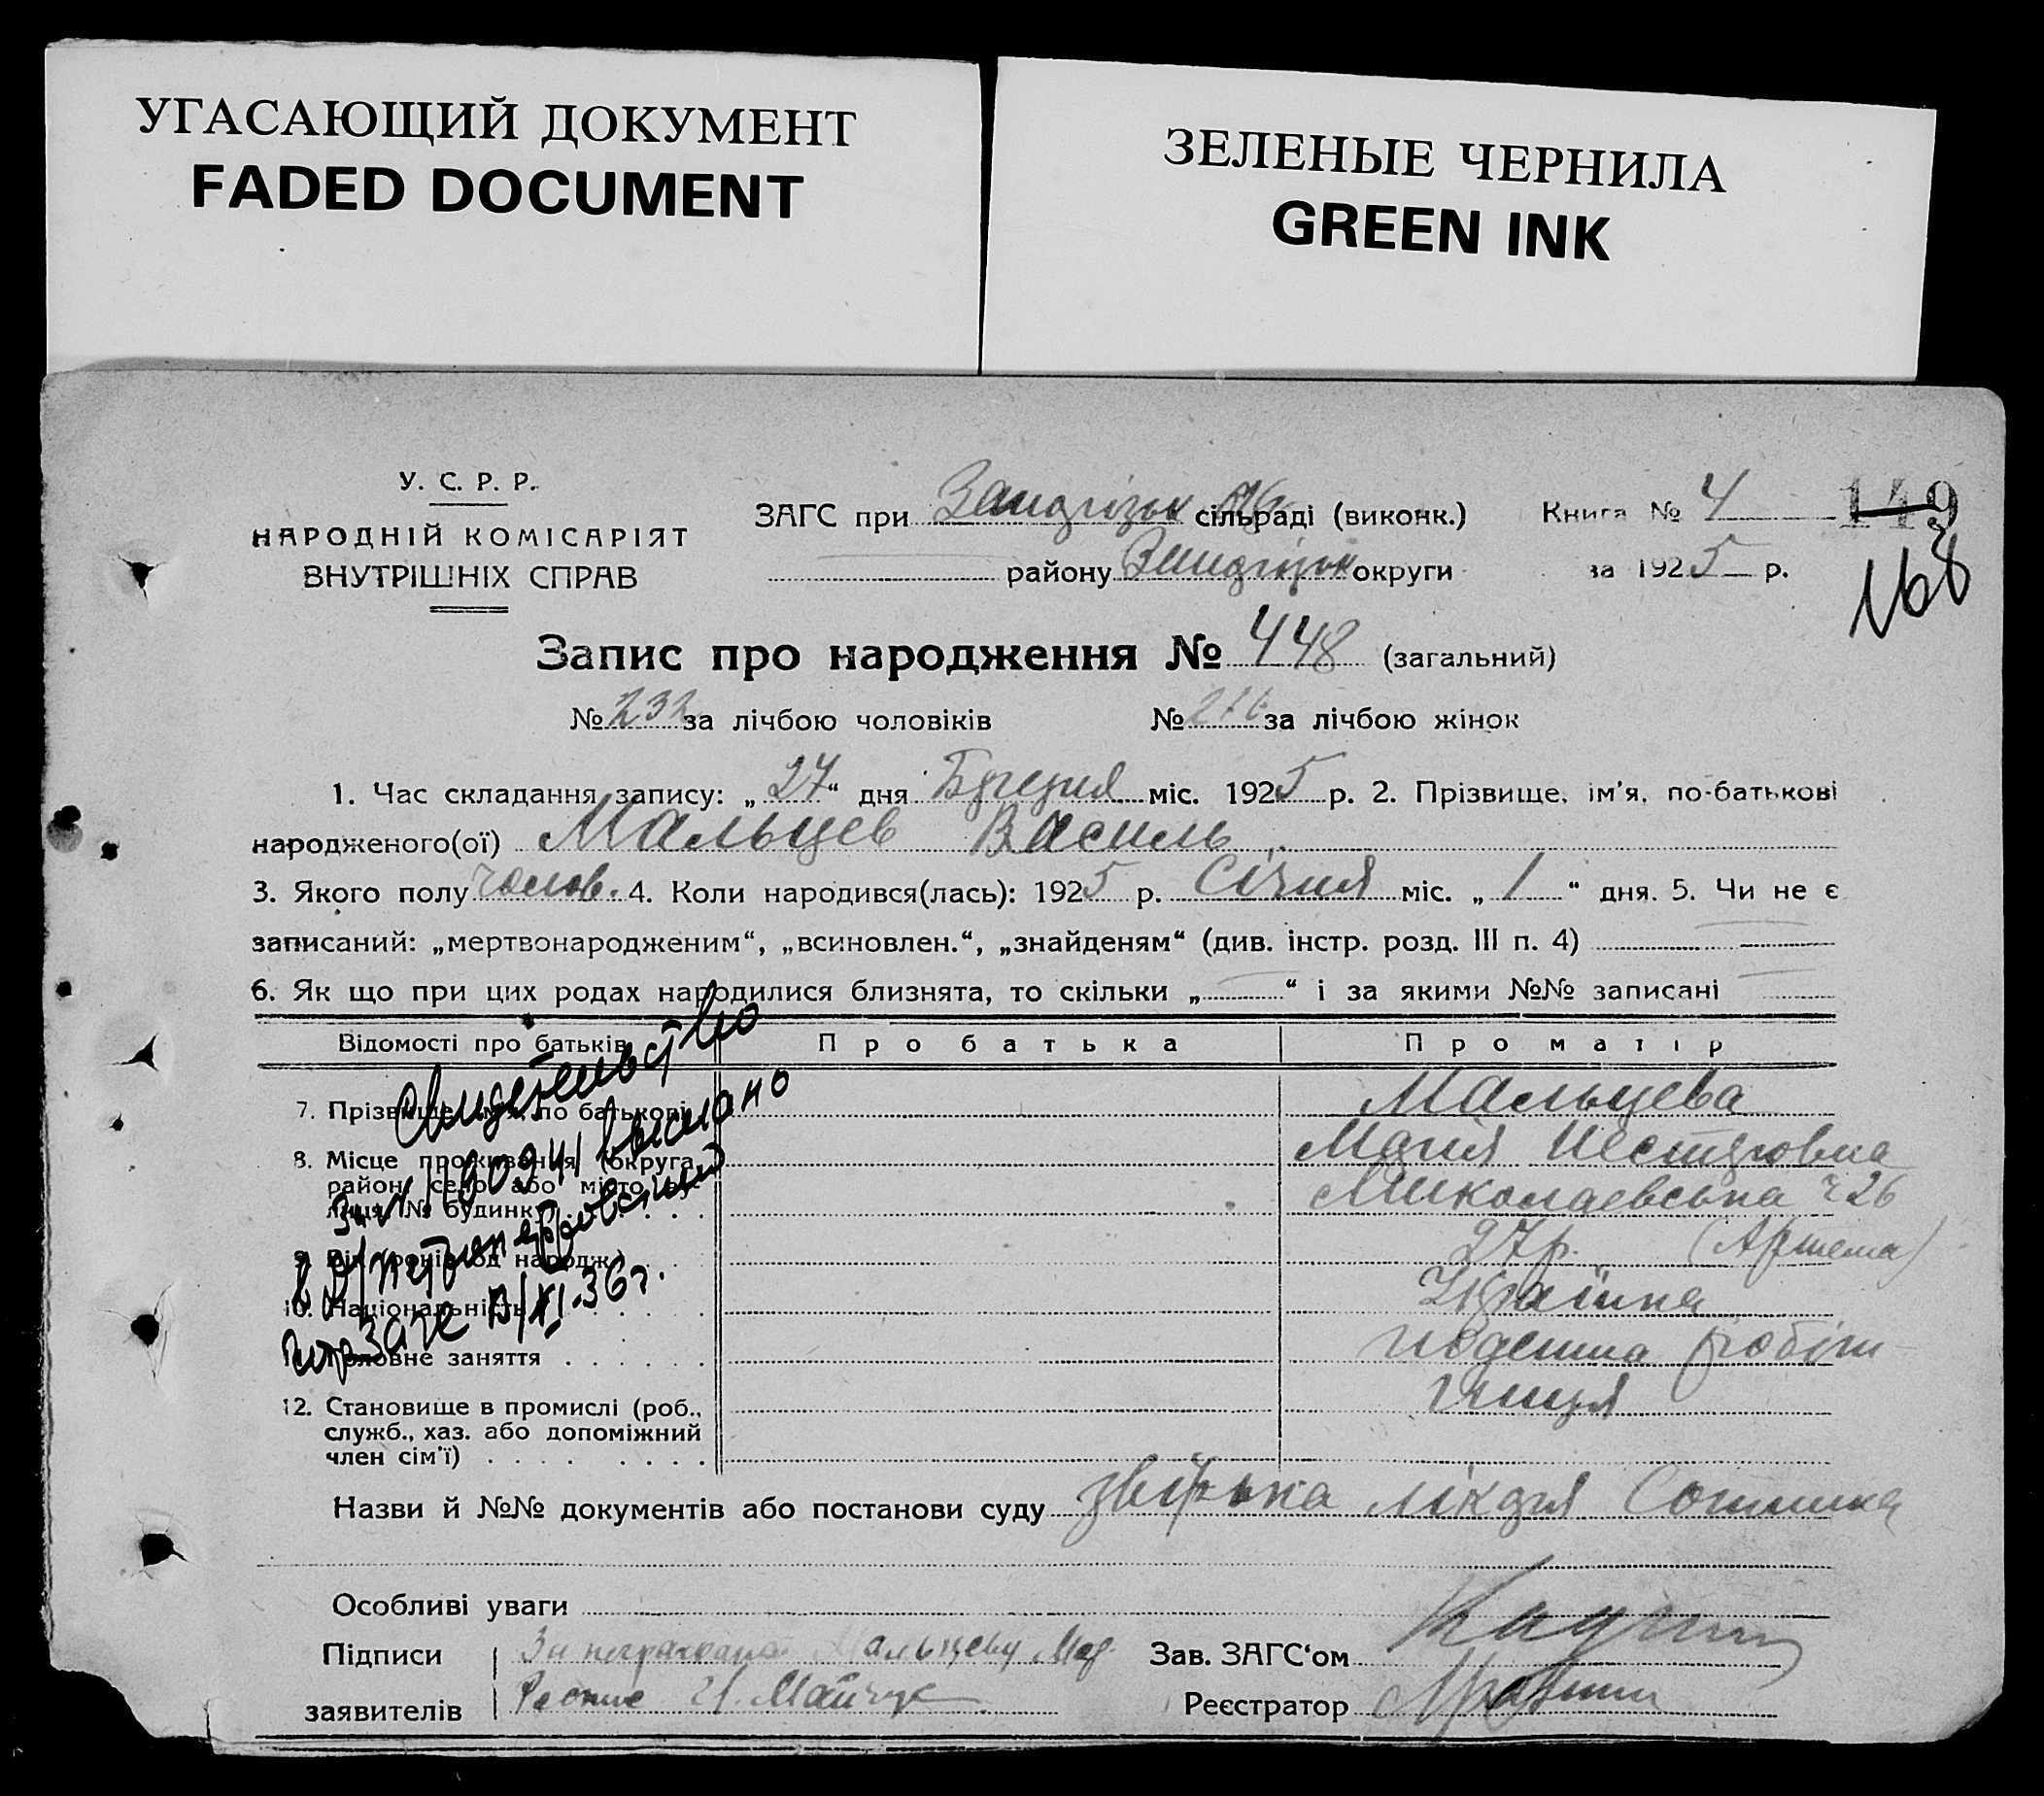 УГАСАЮЩИЙ ДОКУМЕНТ
FADED DOCUMENT
ЗЕЛЕНЫЕ ЧЕРНИЛА
GREEN INK
У. С. Р. Р.
НАРОДНІЙ КОМІСАРІЯТ
ВНУТРІШНІХ СПРАВ
ЗАГС при сільраді (виконк.)
району округи
Книга № 4
за 1925 р.
149
168
Запис про народження № 448 (загальний)
№ 232 за лічбою чоловіків № 216 за лічбою жінок
1. Час складання запису: „27“ дня Березня міс. 1925 р. 2. Прізвище, ім'я, по-батькові
народженого(ої) Мальцев Василь
3. Якого полу чолов. 4. Коли народився(лась): 1925 р. Січня міс. „1“ дня. 5. Чи не є
записаний: „мертвонародженим“, „всиновлен.“, „знайденям“ (див. інстр. розд. III п. 4)
6. Як що при цих родах народилися близнята, то скільки „ “ і за якими №№ записані
Відомості про батьків Про батька Про матір
7. Прізвище, ім'я, по батькові Мальцева
Марія Несторовна
8. Місце проживання (округа,
район, село або місто, ву-
лиця, № будинку) Миколаевська ч 26
9. Вік (років од народж.) 27 р. (Артема)
10. Національність Українка
11. Головне заняття поденна робіт
ниця
12. Становище в промислі (роб.,
служб., хаз. або допоміжний
член сім'ї)
Свидетельство
о рожд. выслано
загс
XI-36 г.
Назви й №№ документів або постанови суду лікаря
Особливі уваги
Підписи За неграмотну Мальцеву Мар.
заявителів Роспис
Зав. ЗАГС'ом
Реєстратор